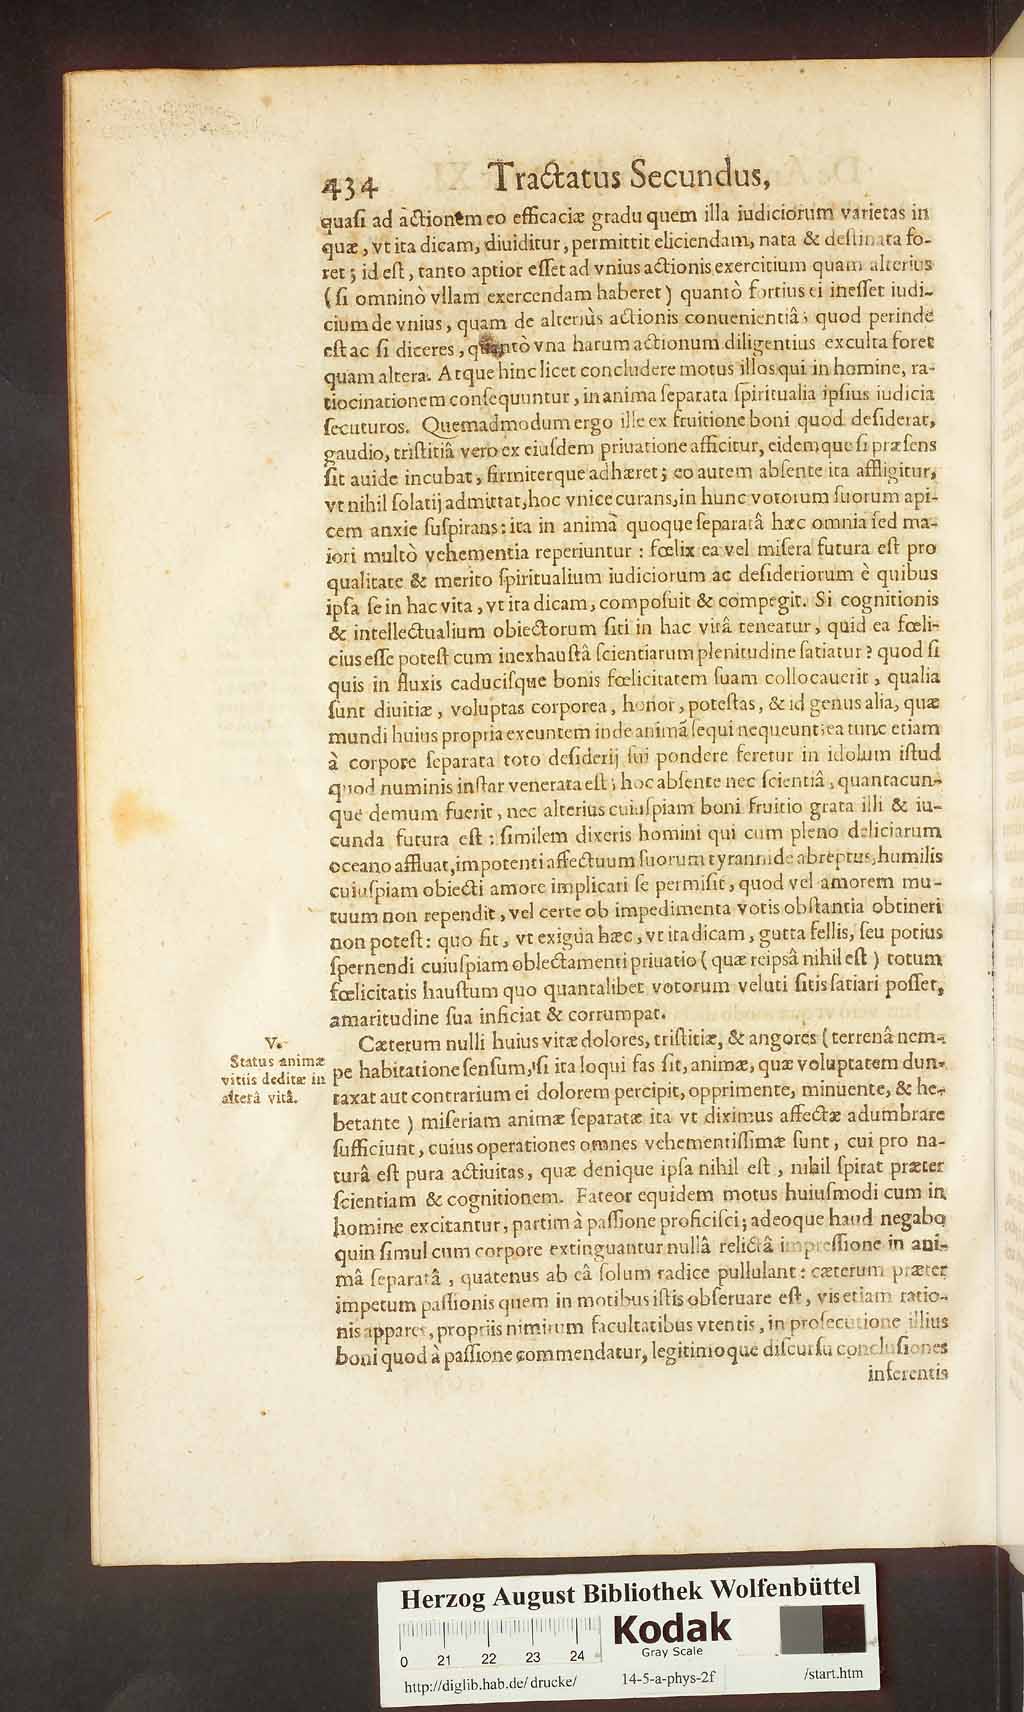 434 Tractatus Secundus,
quaſi ad actionem eo efficaciæ gradu quem illa iudiciorum varietas in
quæ, vt ita dicam, diuiditur, permittit eliciendam, nata & deſtinata fo-
ret; id eſt, tanto aptior eſſet ad vnius actionis exercitium quam alterius
(ſi omninò vllam exercendam haberet) quantò fortius ei ineſſet iudi-
cium de vnius, quam de alterius actionis conuenientiâ; quod perinde
eſt ac ſi diceres, quantò vna harum actionum diligentius exculta foret
quam altera. Atque hinc licet concludere motus illos qui in homine, ra-
tiocinationem conſequuntur, in anima ſeparata ſpiritualia ipſius iudicia
ſecuturos. Quemadmodum ergo ille ex fruitione boni quod deſiderat,
gaudio, triſtitiâ vero ex eiuſdem priuatione afficitur, eidemque ſi præſens
ſit auide incubat, firmiterque adhæret; eo autem abſente ita affligitur,
vt nihil ſolatij admittat, hoc vnice curans, in hunc votorum ſuorum api-
cem anxie ſuſpirans: ita in animâ quoque ſeparatâ hæc omnia ſed ma-
iori multò vehementia reperiuntur: fœlix ea vel miſera futura eſt pro
qualitate & merito ſpiritualium iudiciorum ac deſideriorum è quibus
ipſa ſe in hac vita, vt ita dicam, compoſuit & compegit. Si cognitionis
& intellectualium obiectorum ſiti in hac vitâ teneatur, quid ea fœli-
cius eſſe poteſt cum inexhauſtâ ſcientiarum plenitudine ſatiatur? quod ſi
quis in fluxis caduciſque bonis fœlicitatem ſuam collocauerit, qualia
ſunt diuitiæ, voluptas corporea, honor, poteſtas, & id genus alia, quæ
mundi huius propria exeuntem inde animã ſequi nequeunt; ea tunc etiam
à corpore ſeparata toto deſiderij ſui pondere feretur in idolum iſtud
quod numinis inſtar venerata eſt; hoc abſente nec ſcientiâ, quantacun-
que demum fuerit, nec alterius cuiuſpiam boni fruitio grata illi & iu-
cunda futura eſt: ſimilem dixeris homini qui cum pleno deliciarum
oceano affluat, impotenti affectuum ſuorum tyrannide abreptus, humilis
cuiuſpiam obiecti amore implicari ſe permiſit, quod vel amorem mu-
tuum non rependit, vel certe ob impedimenta votis obſtantia obtineri
non poteſt: quo fit, vt exigua hæc, vt ita dicam, gutta fellis, ſeu potius
ſpernendi cuiuſpiam oblectamenti priuatio (quæ reipsâ nihil eſt) totum
fœlicitatis hauſtum quo quantalibet votorum veluti ſitis ſatiari poſſet,
amaritudine ſua inficiat & corrumpat.
V.
Status animæ
vitiis deditæ in
alterâ vitâ.
Cæterum nulli huius vitæ dolores, triſtitiæ, & angores (terrenâ nem-
pe habitatione ſenſum, ſi ita loqui fas ſit, animæ, quæ voluptatem dun-
taxat aut contrarium ei dolorem percipit, opprimente, minuente, & he-
betante) miſeriam animæ ſeparatæ ita vt diximus affectæ adumbrare
ſufficiunt, cuius operationes omnes vehementiſſimæ ſunt, cui pro na-
turâ eſt pura actiuitas, quæ denique ipſa nihil eſt, nihil ſpirat præter
ſcientiam & cognitionem. Fateor equidem motus huiuſmodi cum in
homine excitantur, partim à paſſione proficiſci; adeoque haud negabo
quin ſimul cum corpore extinguantur nullâ relictâ impreſſione in ani-
mâ ſeparatâ, quatenus ab eâ ſolum radice pullulant: cæterum præter
impetum paſſionis quem in motibus iſtis obſeruare eſt, vis etiam ratio-
nis apparet, propriis nimirum facultatibus vtentis, in proſecutione illius
boni quod à paſſione commendatur, legitimoque diſcurſu concluſiones
inferentis
Herzog August Bibliothek Wolfenbüttel
Kodak
Gray Scale
0 21 22 23 24
http://diglib.hab.de/drucke/ 14-5-a-phys-2f /start.htm